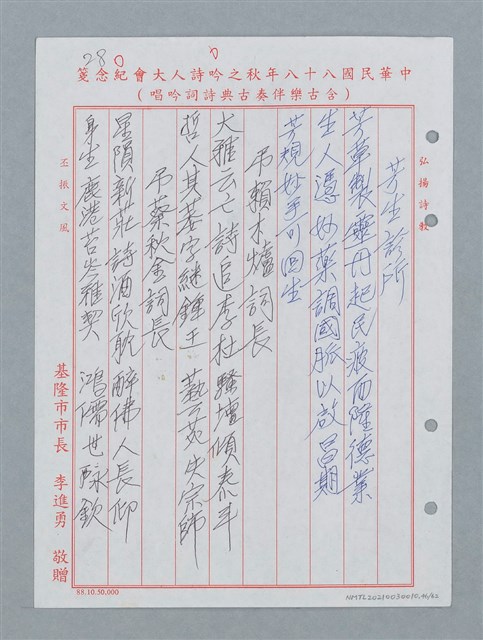 28
中華民國八十八年秋之吟詩人大會紀念箋
（含古樂伴奏古典詩詞吟唱）
弘揚詩教
芳生診所
芳草製靈丹起民疲而隆德業
生人憑妙藥調國脈以啟昌期
芳規妙手可回生
弔賴木爐詞長
大雅云亡詩追李杜騷壇傾泰斗
哲人其萎字繼鍾王藝苑失宗師
弔蔡秋金詞長
星隕新莊詩酒欣耽醉佛人長仰
身生鹿港苔岑雅契鴻儒世詠欽
丕振文風
基隆市市長 李進勇 敬贈
88.10.50,000
NMTL20210030010.46/62